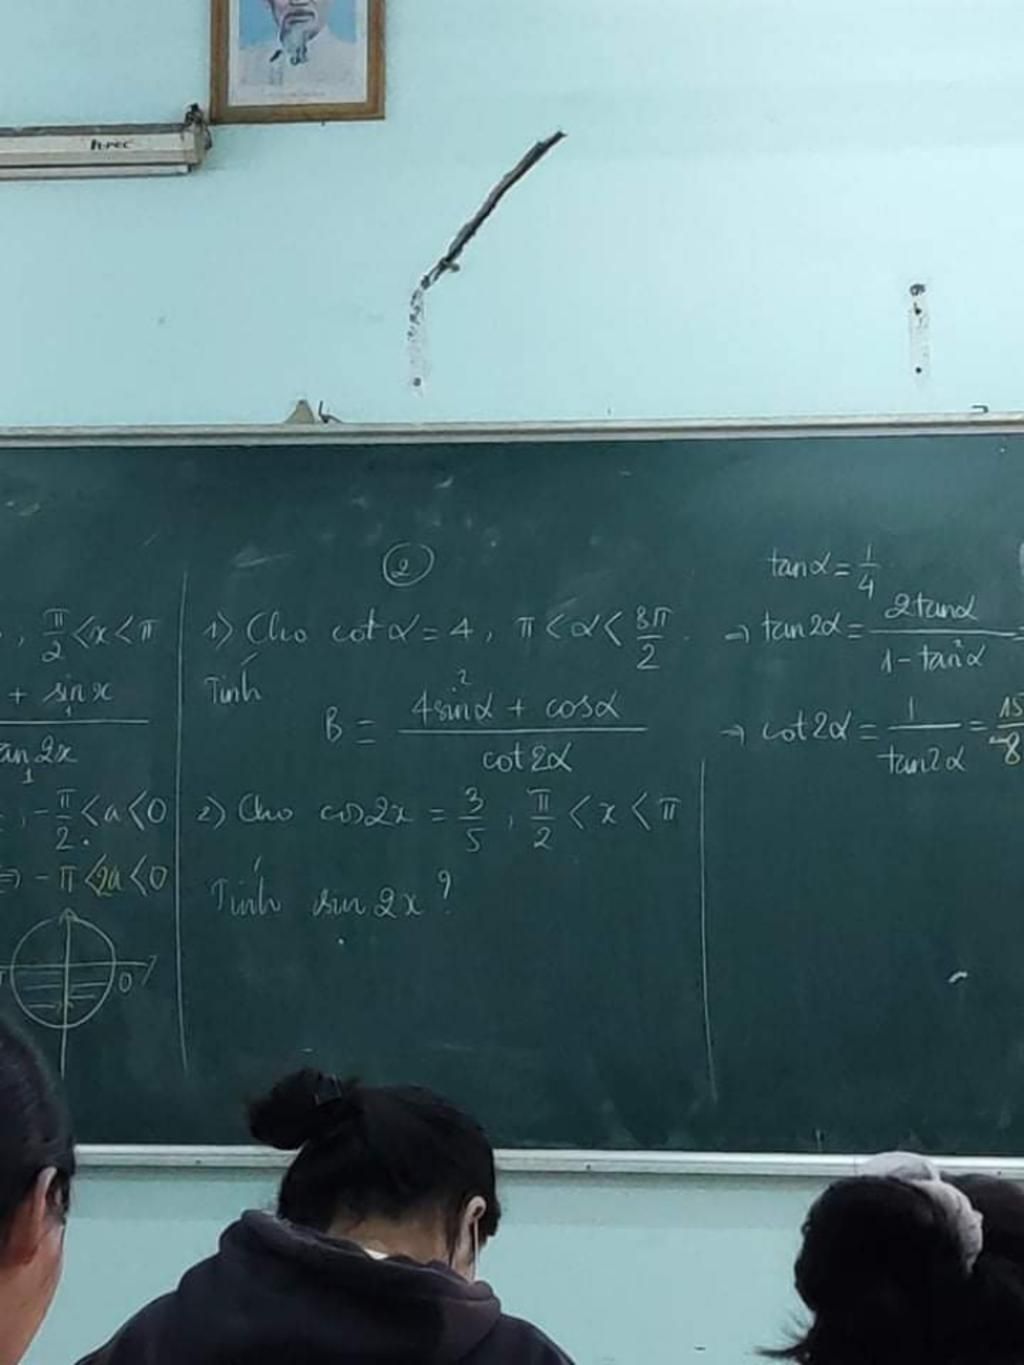 , π/2 < x < π
+ sin x
tan 2x
1
, -π/2 < a < 0
⇔ -π < 2a < 0
0
②
1) Cho cot α = 4, π < α < 3π/2.
Tính
B = (4sin²α + cosα)/(cot 2α)
2) Cho cos2x = 3/5, π/2 < x < π
Tính sin 2x?
tanα = 1/4
⇒ tan2α = (2tanα)/(1 - tan²α) =
⇒ cot2α = 1/(tan2α) = 15/8